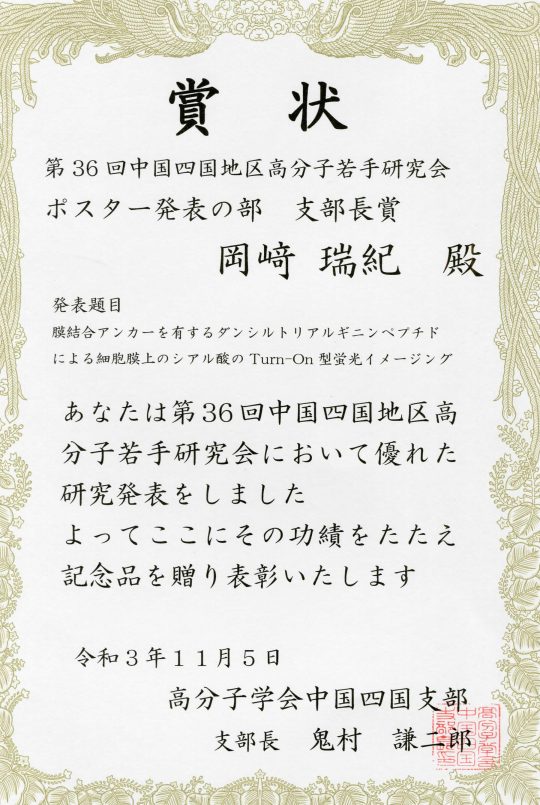 賞状
第36回中国四国地区高分子若手研究会
ポスター発表の部　支部長賞
岡﨑 瑞紀　殿
発表題目
膜結合アンカーを有するダンシルトリアルギニンペプチド
による細胞膜上のシアル酸の Turn-On 型蛍光イメージング
あなたは第36回中国四国地区高
分子若手研究会において優れた
研究発表をしました
よってここにその功績をたたえ
記念品を贈り表彰いたします
令和３年１１月５日
高分子学会中国四国支部
支部長　鬼村　謙二郎